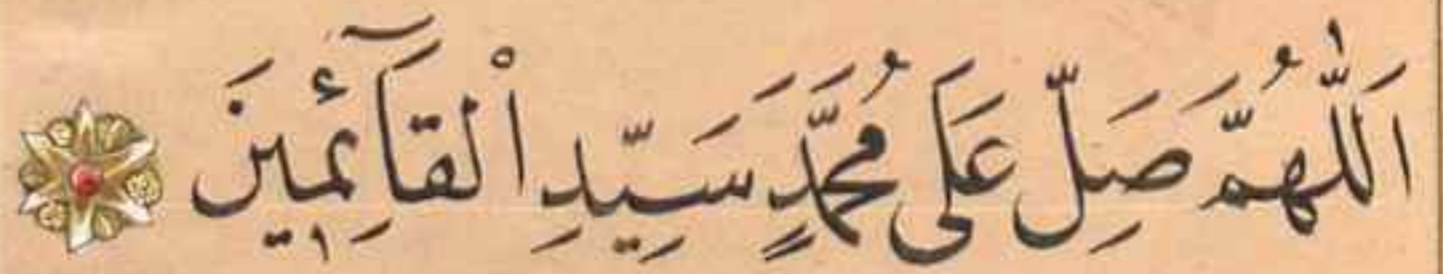 اَللّٰهُمَّ صَلِّ عَلٰى مُحَمَّدٍ سَيِّدِ الْقَآئِمٖينَ